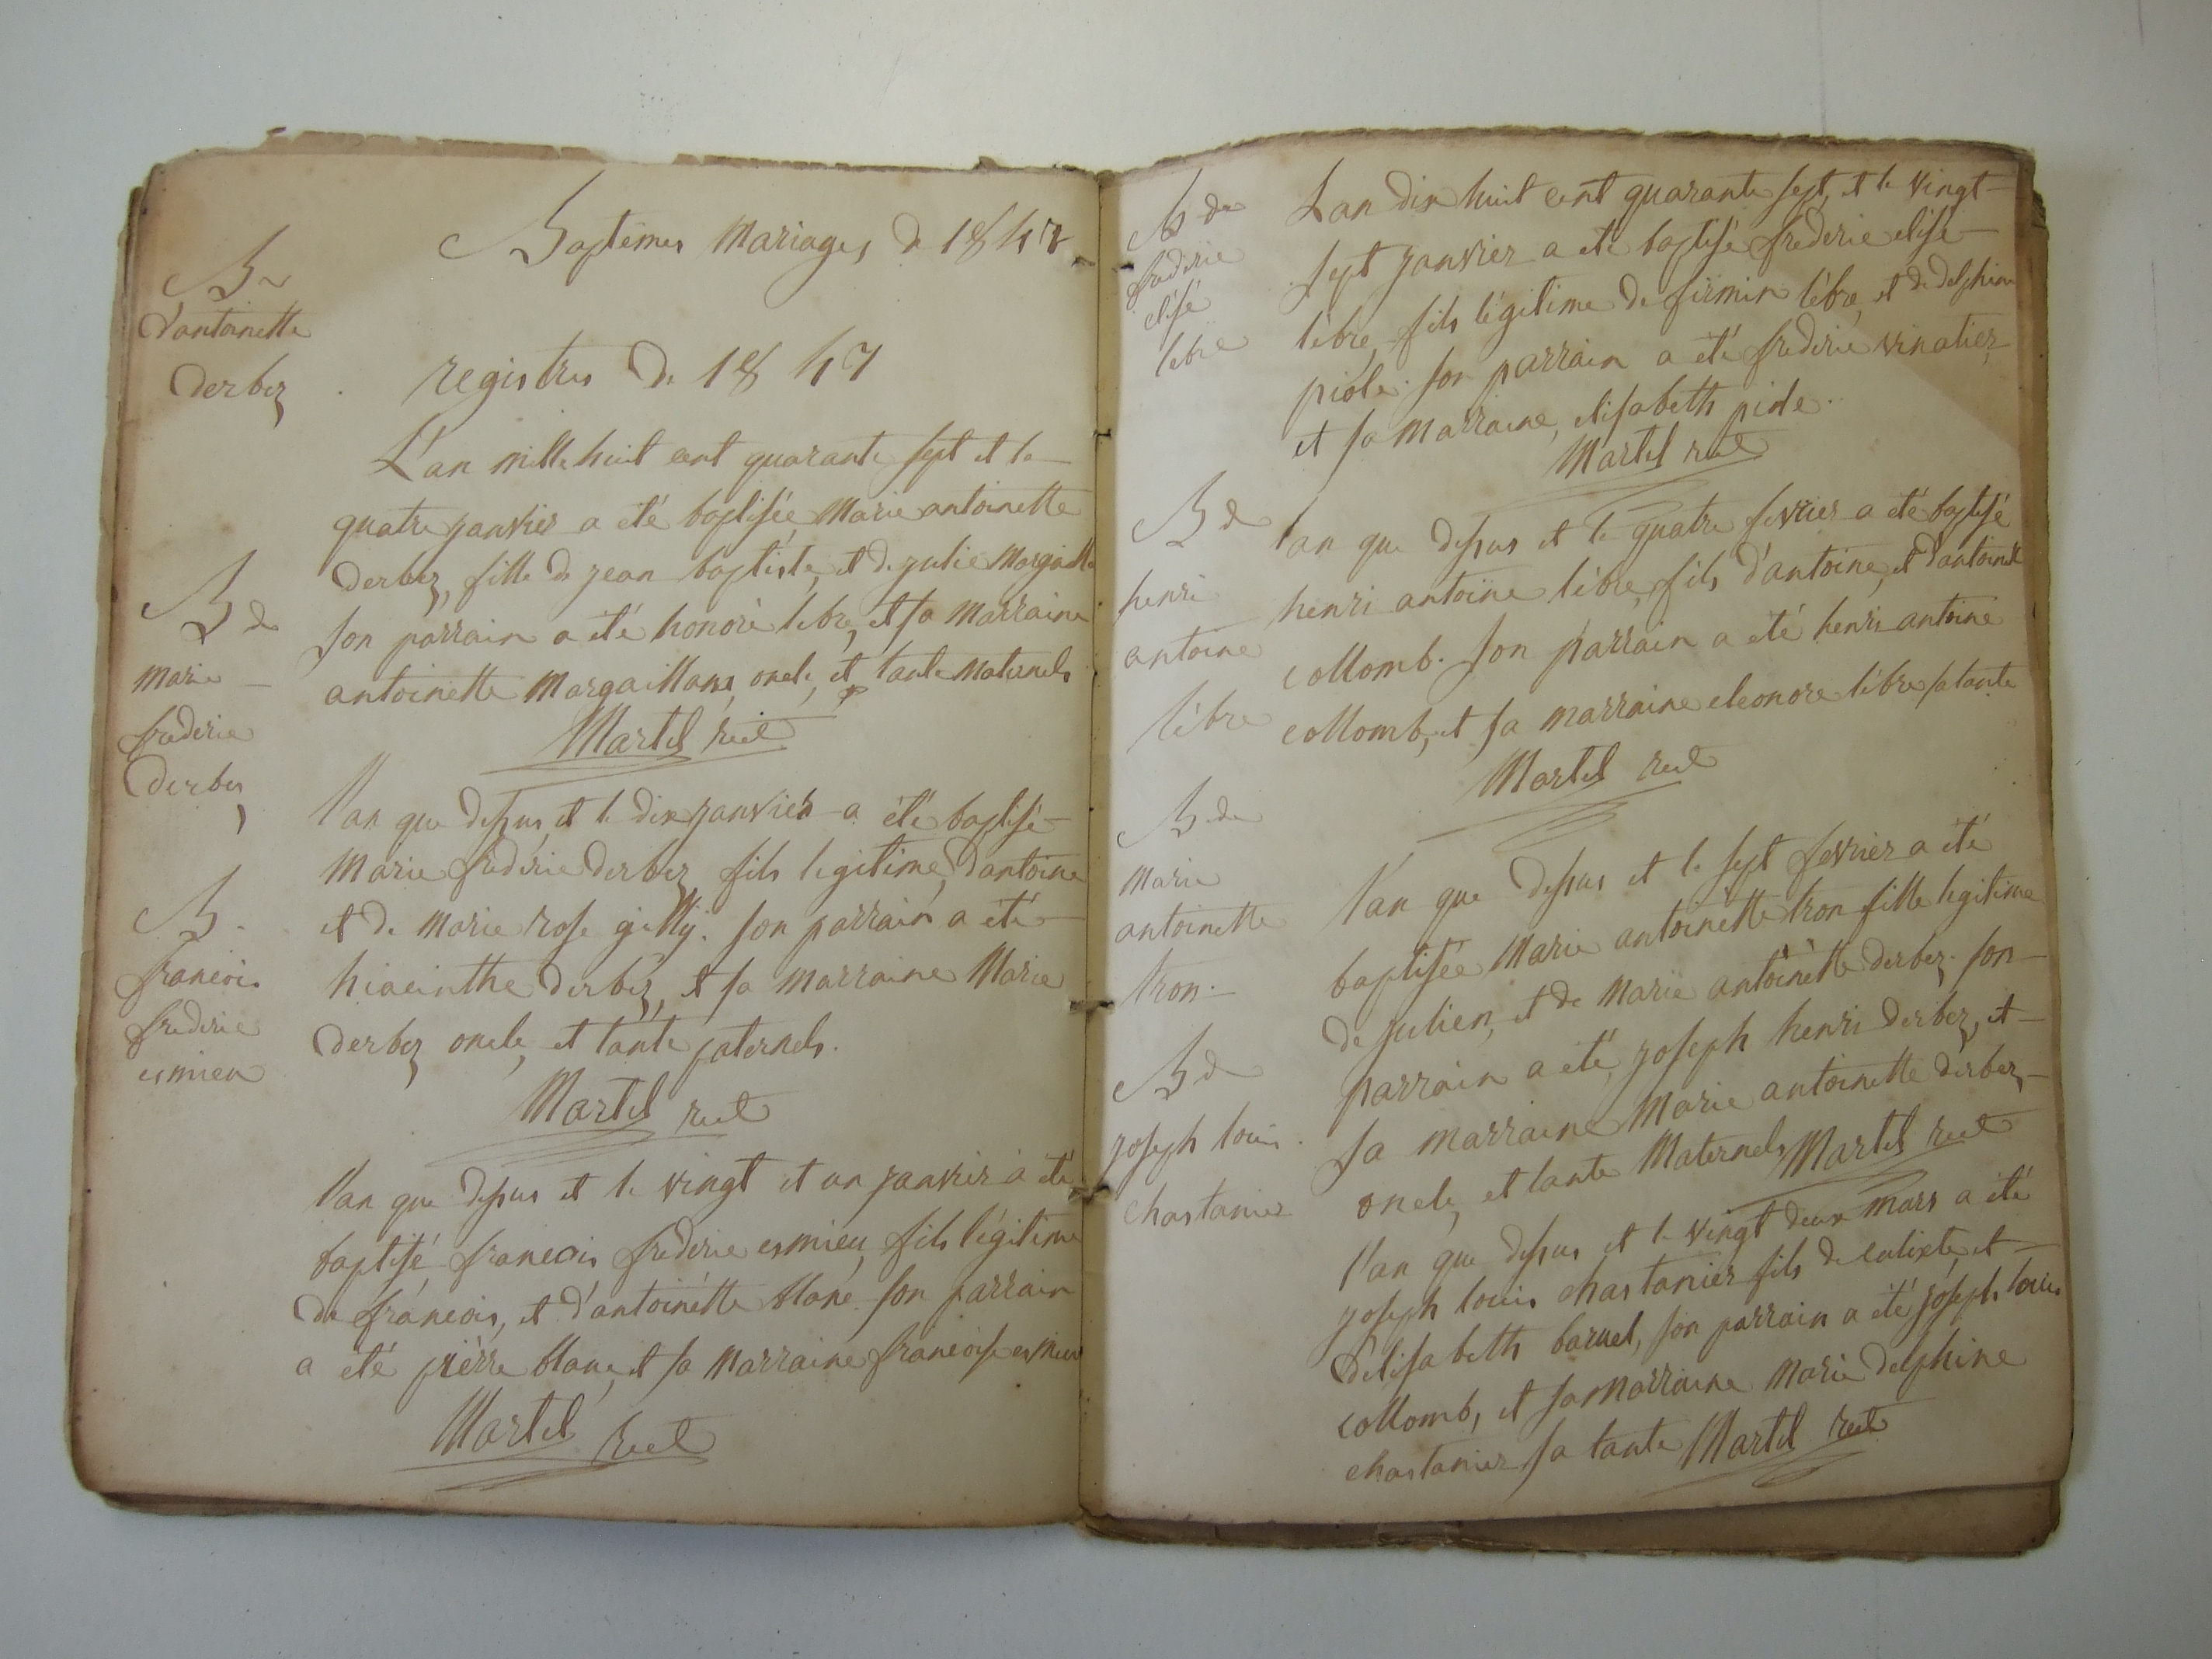 Baptêmes Mariages de 1847
registres de 1847
B
d'antoinette
derbez
L'an mille huit cent quarante sept et le
quatre janvier a été baptisée Marie antoinette
derbez, fille de jean baptiste, et de julie Margaill
son parrain a été honoré lebre, et sa Marraine
antoinette Margaillans, oncle, et tante Maternels
Martel rect
B de
Marie
frederic
Derbez
l'an que dessus, et le dix janvier a été baptisé
Marie fréderic derbez fils legitime, d'antoine
et de Marie rose gilly. son parrain a été
hiacinthe derbez, et sa marraine Marie
derbez oncle, et tante paternels.
Martel rect
B
francois
frederic
esmieu
l'an que dessus et le vingt et un janvier a été
baptisé francois frederic esmieu, fils légitime
de francois, et d'antoinette blanc. son parrain
a été pierre blanc, et sa Marraine francoise esmieu
Martel rect
B de
frederic
elisé
lebre
L'an dix huit cent quarante sept, et le vingt
sept janvier a été baptisé frederic elisé
lèbre, fils légitime de firmin lèbre, et de delphine
piole. son parrain a été frederic vinatier
et sa marraine, elisabeth piole.
Martel rect
B de
henri
antoine
lèbre
l'an que dessus et le quatre fevrier a été baptisé
henri antoine lèbre, fils d'antoine, et d'antoinette
collomb. son parrain a été henri antoine
collomb, et sa marraine eleonore lèbre sa tante
Martel rect
B de
Marie
antoinette
tron.
l'an que dessus et le sept fevrier a été
baptisée Marie antoinette tron fille legitime
de julien, et de Marie antoinette derbez. son
parrain a été, joseph henri derbez, et
sa marraine Marie antoinette derbez,
oncle, et tante Maternels Martel rect
B de
joseph louis
chastanier
l'an que dessus et le vingt deux mars a été
joseph louis chastanier fils de calixte, et
d'elisabeth baruel, son parrain a été joseph louis
collomb, et sa Marraine Marie delphine
chastanier sa tante Martel rect